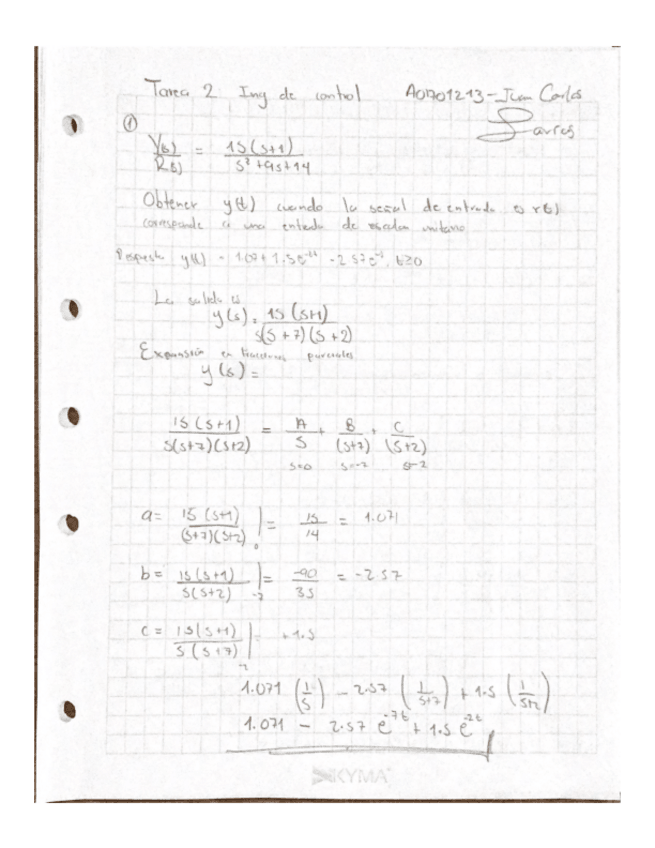 Tarea 2 Ing de control A01701213-Juan Carlos
Garcés
①
Y(s)/R(s) = 15(s+1)/(s²+9s+14)
Obtener y(t) cuando la señal de entrada es r(t)
corresponde a una entrada de escalon unitario
Respuesta y(t) = 1.07+1.5e^-2t -2.57e^-7t, t≥0
La salida es
y(s) = 15(s+1)/(s(s+7)(s+2))
Expansión en fracciones parciales
y(s) =
15(s+1)/(s(s+7)(s+2)) = A/s + B/(s+7) + C/(s+2)
s=0 s=-7 s=-2
a = 15(s+1)/((s+7)(s+2)) |₀ = 15/14 = 1.071
b = 15(s+1)/(s(s+2)) |₋₇ = -90/35 = -2.57
c = 15(s+1)/(s(s+7)) |₋₂ = +1.5
1.071 (1/s) - 2.57 (1/(s+7)) + 1.5 (1/(s+2))
1.071 - 2.57 e^-7t + 1.5 e^-2t
SKYMA